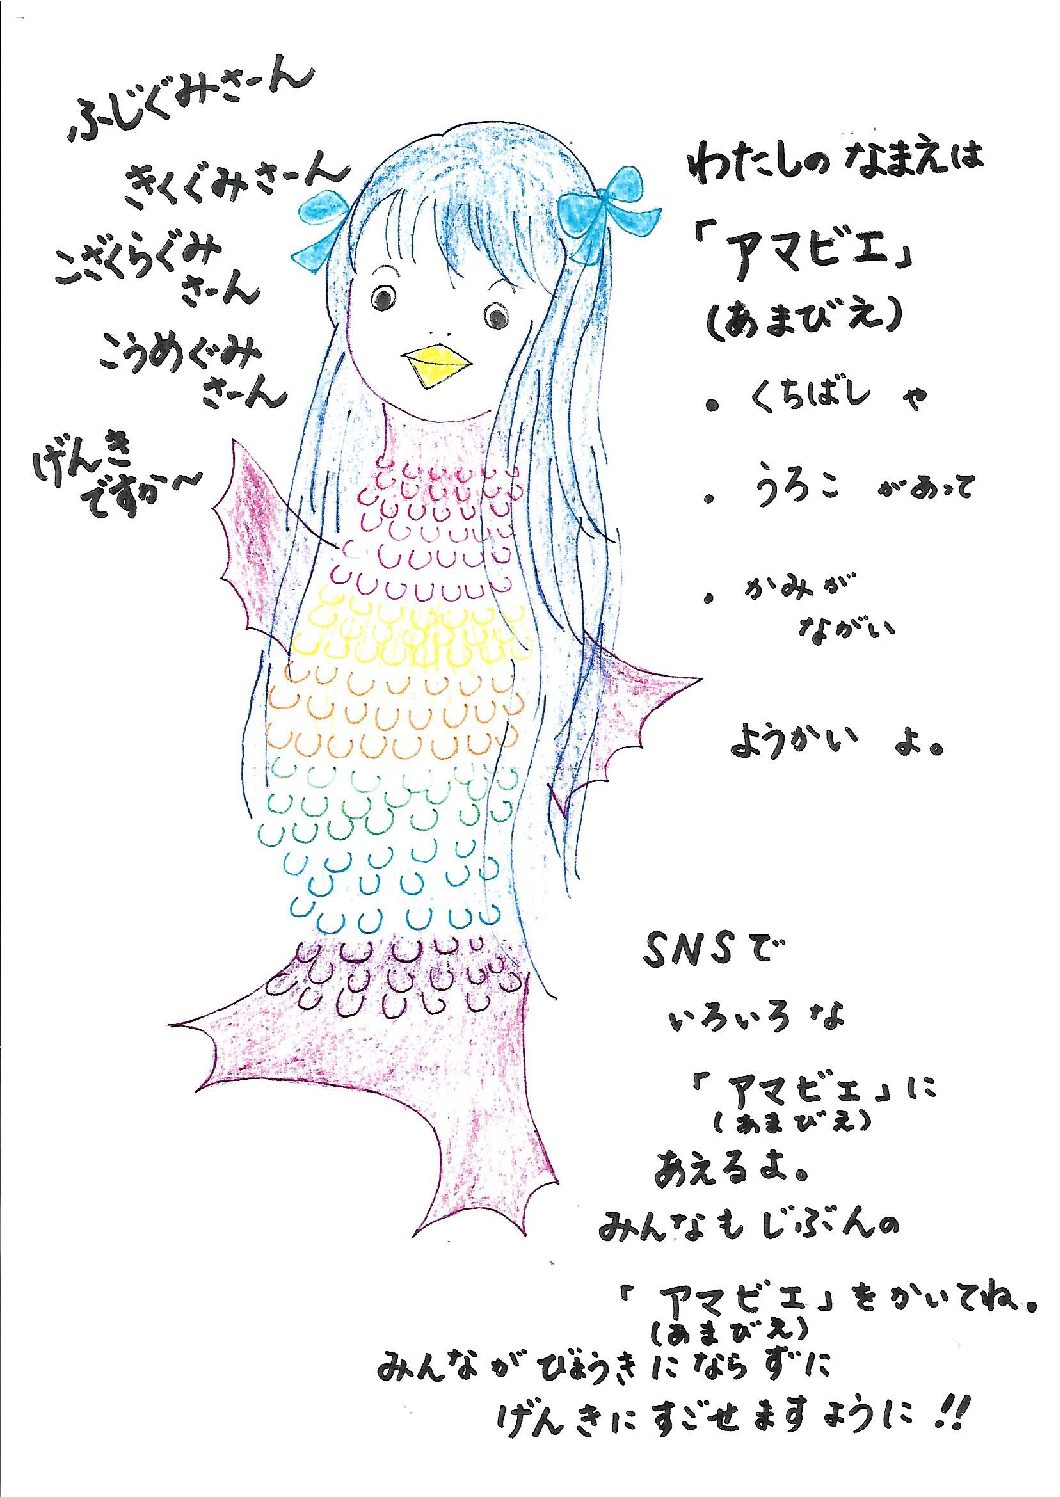 ふじぐみさーん
きくぐみさーん
こざくらぐみ
さーん
こうめぐみ
さーん
げんき
ですか～
わたしの なまえは
「アマビエ」
(あまびえ)
・ くちばし や
・ うろこ があって
・ かみが
ながい
ようかい よ。
SNSで
いろいろ な
「アマビエ」に
(あまびえ)
あえるよ。
みんなも じぶんの
「アマビエ」をかいてね。
(あまびえ)
みんなが びょうきに ならずに
げんきに すごせますように!!